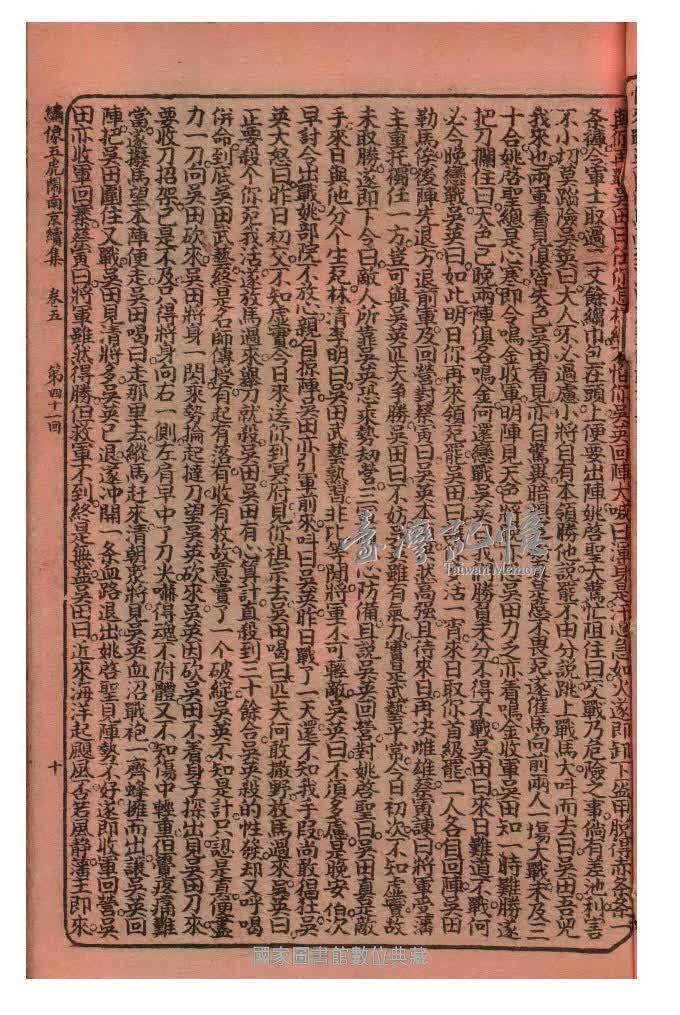 各轉令軍士取過一丈餘縐巾包在頭上便要出陣姚啓聖大驚忙阻住曰交戰乃危險之事倘有差池利害
不小切莫蹈險吳英曰大人不必過慮小將自有本領勝他說罷不由分說跳上戰馬大叫而去曰吳田吾兒
我來也兩軍看見俱皆失色吳田看見亦自驚異暗想
十合姚啓聖總是心寒即令鳴金收軍明陣見天色將晚 吳田力乏亦着鳴金收軍吳田知一時難勝遂
把刀攔住曰天色已晚兩陣俱各鳴金何還戀戰吳英 我勝負未分不得不戰吳田曰來日難道不戰何
必今晚戀戰吳英曰如此明日你再來領死罷吳田曰 活一宵來日取你首級罷二人各自回陣吳田
勒馬俟後陣先退方退前軍及回營對蔡寅曰吳英本 然高强且待來日再决雌雄蔡寅諫曰將軍受藩
主重托獨任一方豈可與吳英匹夫爭勝吳田曰不妨吳 雖有氣力實是武藝平常今日初次不知虛實故
未取勝遂即下令曰敵人所靠吳英恐乘勢劫營三 心防備且說吳英回營對姚啓聖曰吳田真是敵
手來日與他分个生死林清李明曰吳田武藝熟習非比等閒將軍不可輕敵吳英曰不須多慮是晚安怕次
早討令出戰姚部院不放心親自掠陣吳田亦引軍前來叫曰吳英昨日戰了一天還不知我手段尚敢猖狂吳
英大怒曰昨日初交不知虛實今日來送你到冥府見你祖宗去吳田喝曰匹夫何敢撒野放馬過來吳英曰
正要殺个你死我活遂放馬過來舉刀就殺吳田吳田有心算計直殺到三十餘合吳英殺的性發却又呼喝
併命到底吳田武藝終是名師傳授有起有落有收有放故意賣了一个破綻吳英不知是計只認是真便盡
力一刀向吳田砍來吳田將身一閃乘勢掄起撻刀望吳英砍來吳英因砍吳田不着身子探出見吳田刀來
要收刀招架已是不及只得將身向右一側左肩早中了刀尖嚇得魂不附體又不知傷中輕重但覺疼痛難
當遂撥馬望本陣便走吳田喝曰走那里去縱馬赶來清朝衆將見吳英血沼戰袍一齊蜂擁而出讓吳英回
陣把吳田圍住又戰吳田見清將多吳英已退遂沖開一条血路退出姚啓聖見陣勢不好遂即收軍回營吳
田亦收軍回寨蔡寅曰將軍雖然得勝但救軍不到終是無益吳田曰近來海洋起颶風否若風静藩主即來
繡像五虎鬧南京續集 卷五 第四十一回 十
臺灣記憶
Taiwan Memory
國家圖書館數位典藏